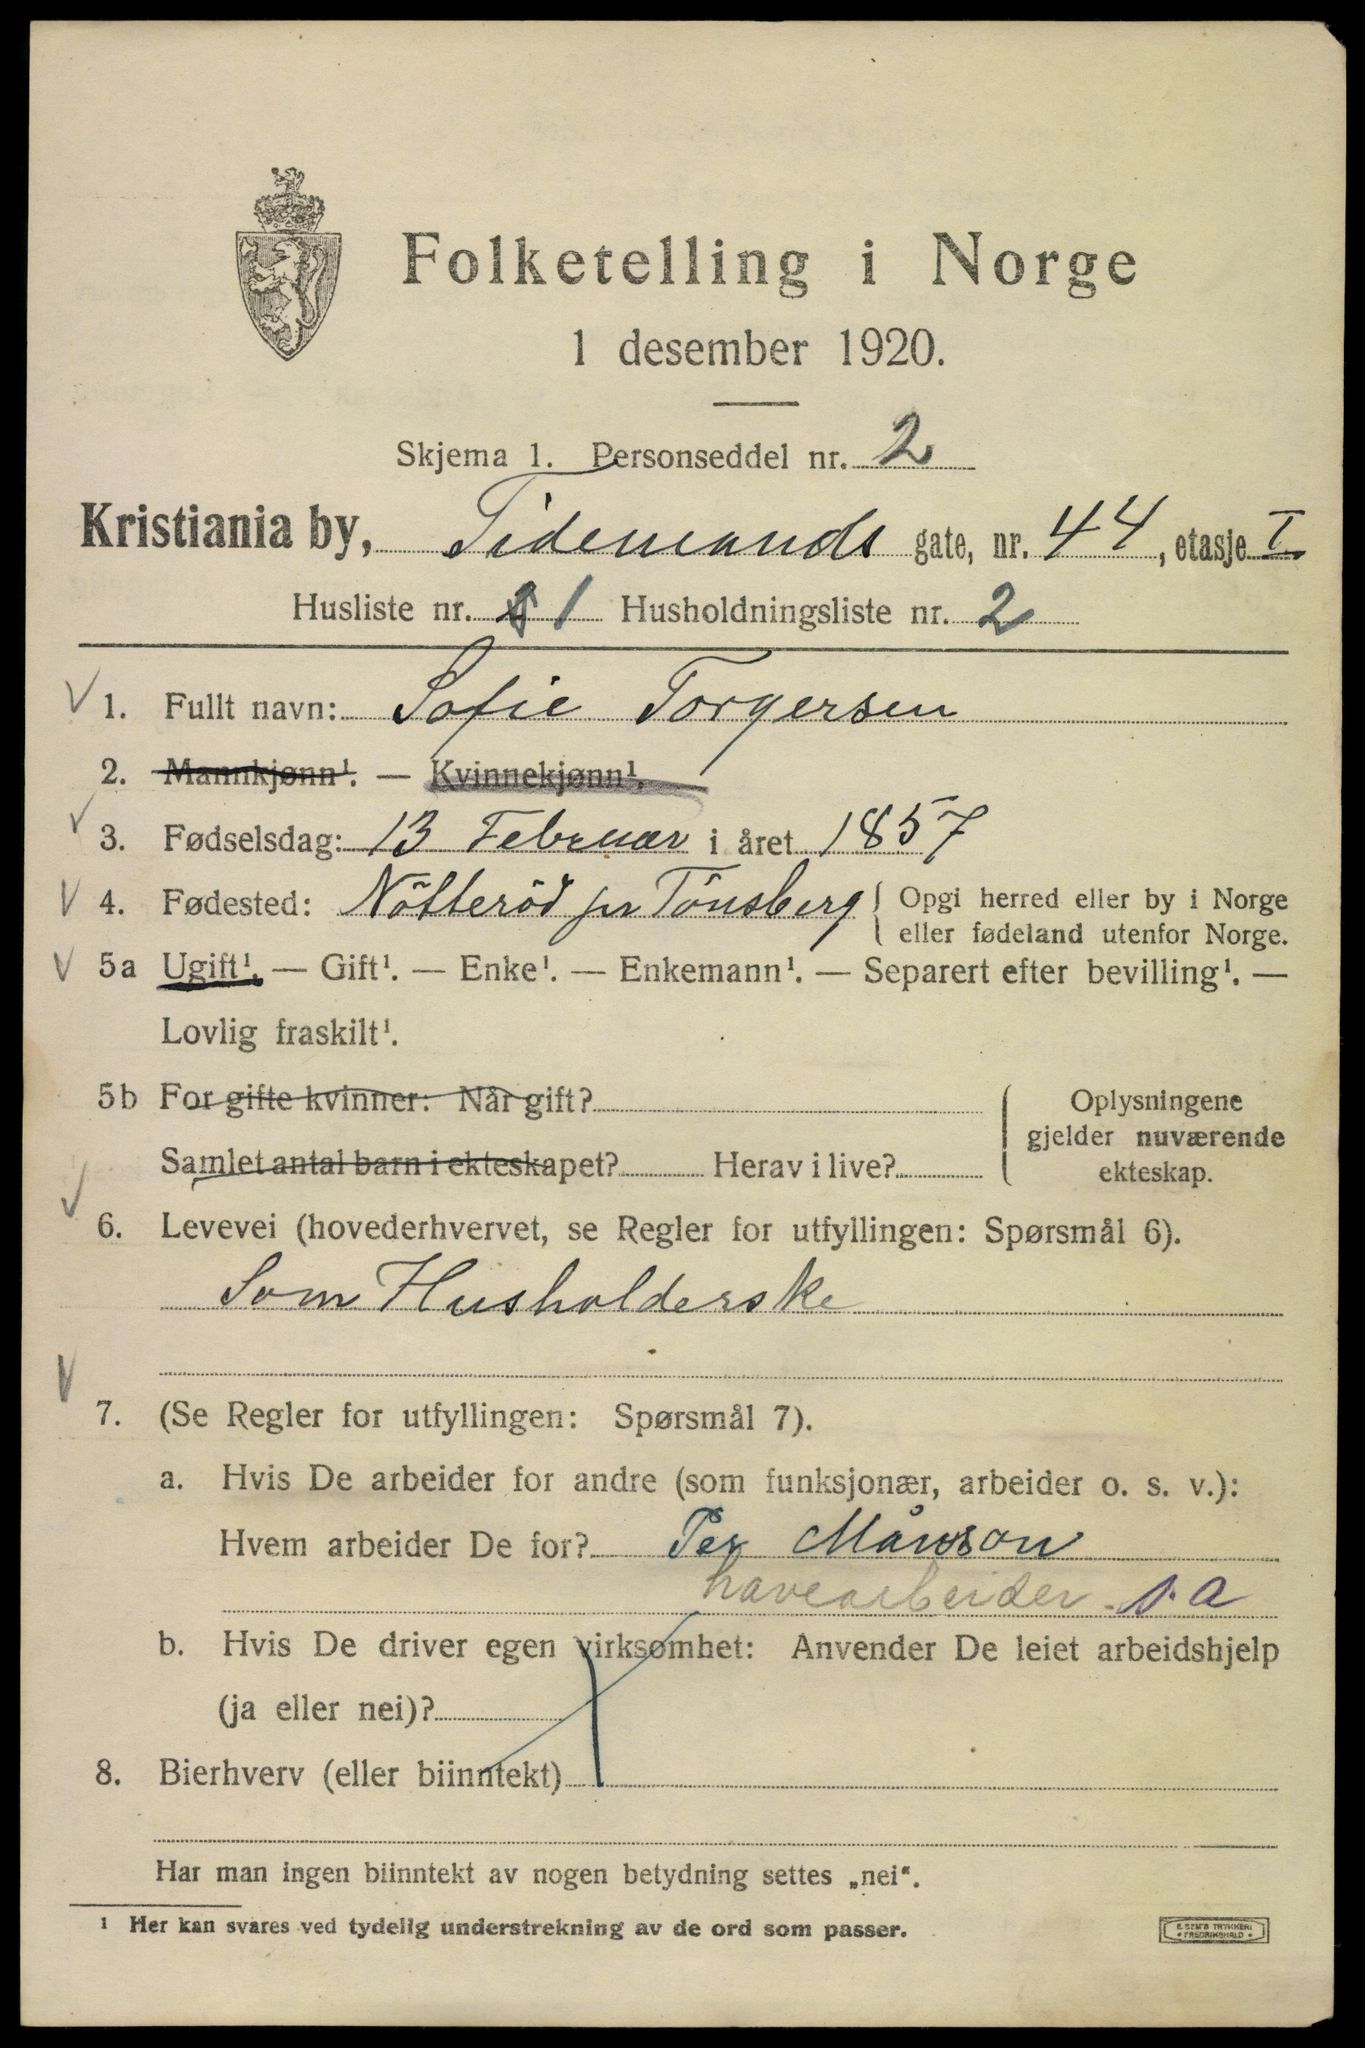 Folketelling i Norge
1 desember 1920.
Skjema 1. Personseddel nr. 2
Kristiania by, Tidemands gate, nr. 44, etasje I.
Husliste nr. 1 Husholdningsliste nr. 2
1. Fullt navn: Sofie Torgersen
2. Mannkjønn¹. — Kvinnekjønn¹.
3. Fødselsdag: 13 Februar i året 1857
4. Fødested: Nötteröd pr Tönsberg { Opgi herred eller by i Norge
eller fødeland utenfor Norge.
5a Ugift¹. — Gift¹. — Enke¹. — Enkemann¹. — Separert efter bevilling¹. —
Lovlig fraskilt¹.
5b For gifte kvinner: Når gift? { Oplysningene
gjelder nuværende
Samlet antal barn i ekteskapet? Herav i live? ekteskap.
6. Levevei (hovederhvervet, se Regler for utfyllingen: Spørsmål 6).
Som Husholderske
7. (Se Regler for utfyllingen: Spørsmål 7).
a. Hvis De arbeider for andre (som funksjonær, arbeider o. s. v.):
Hvem arbeider De for? Per Månson
havearbeider. s.a
b. Hvis De driver egen virksomhet: Anvender De leiet arbeidshjelp
(ja eller nei)?
8. Bierhverv (eller biinntekt)
Har man ingen biinntekt av nogen betydning settes „nei“.
¹ Her kan svares ved tydelig understrekning av de ord som passer.
E. SEM'S TRYKKERI
• FREDRIKSHALD •